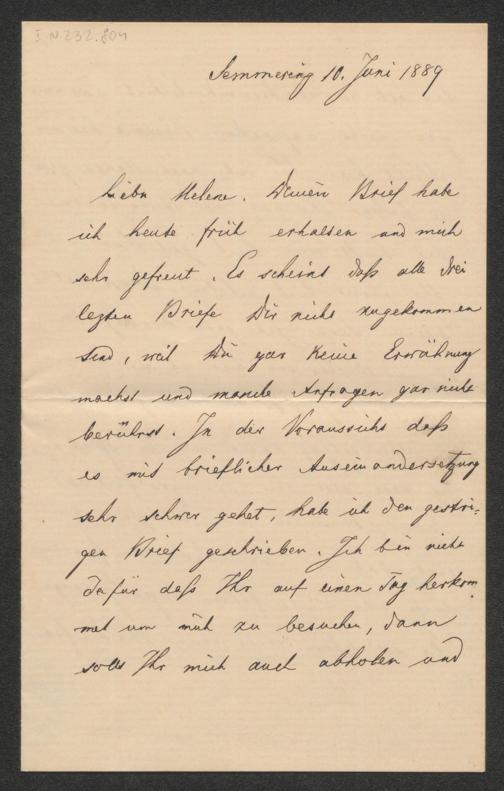 I.N. 232.804
Semmering 10. Juni 1889
Liebe Helene. Deinen Brief habe
ich heute früh erhalten und mich
sehr gefreut. Es scheint daß alle drei
lezten Briefe Dir nicht zugekommen
sind, weil Du gar keine Erwähnung
machst und manche Anfragen gar nicht
berührst. In der Voraussicht daß
es mit brieflicher Auseinandersetzung
sehr schwer gehet, habe ich den gestri-
gen Brief geschrieben. Ich bin nicht
dafür daß Ihr auf einen Tag herkom
met um mich zu besuchen, dann
sollt Ihr mich auch abholen und